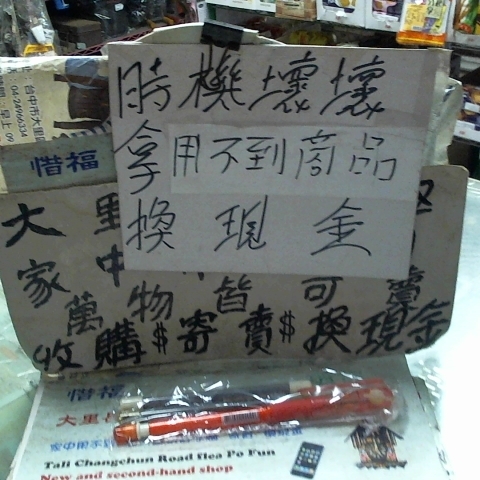 時機壞壞
拿用不到商品
換現金
惜福
大里
家中
萬物皆可賣
收購$寄賣$換現金
惜福
大里
Tali Changchun Road flea Po Fun
New and second-hand shop